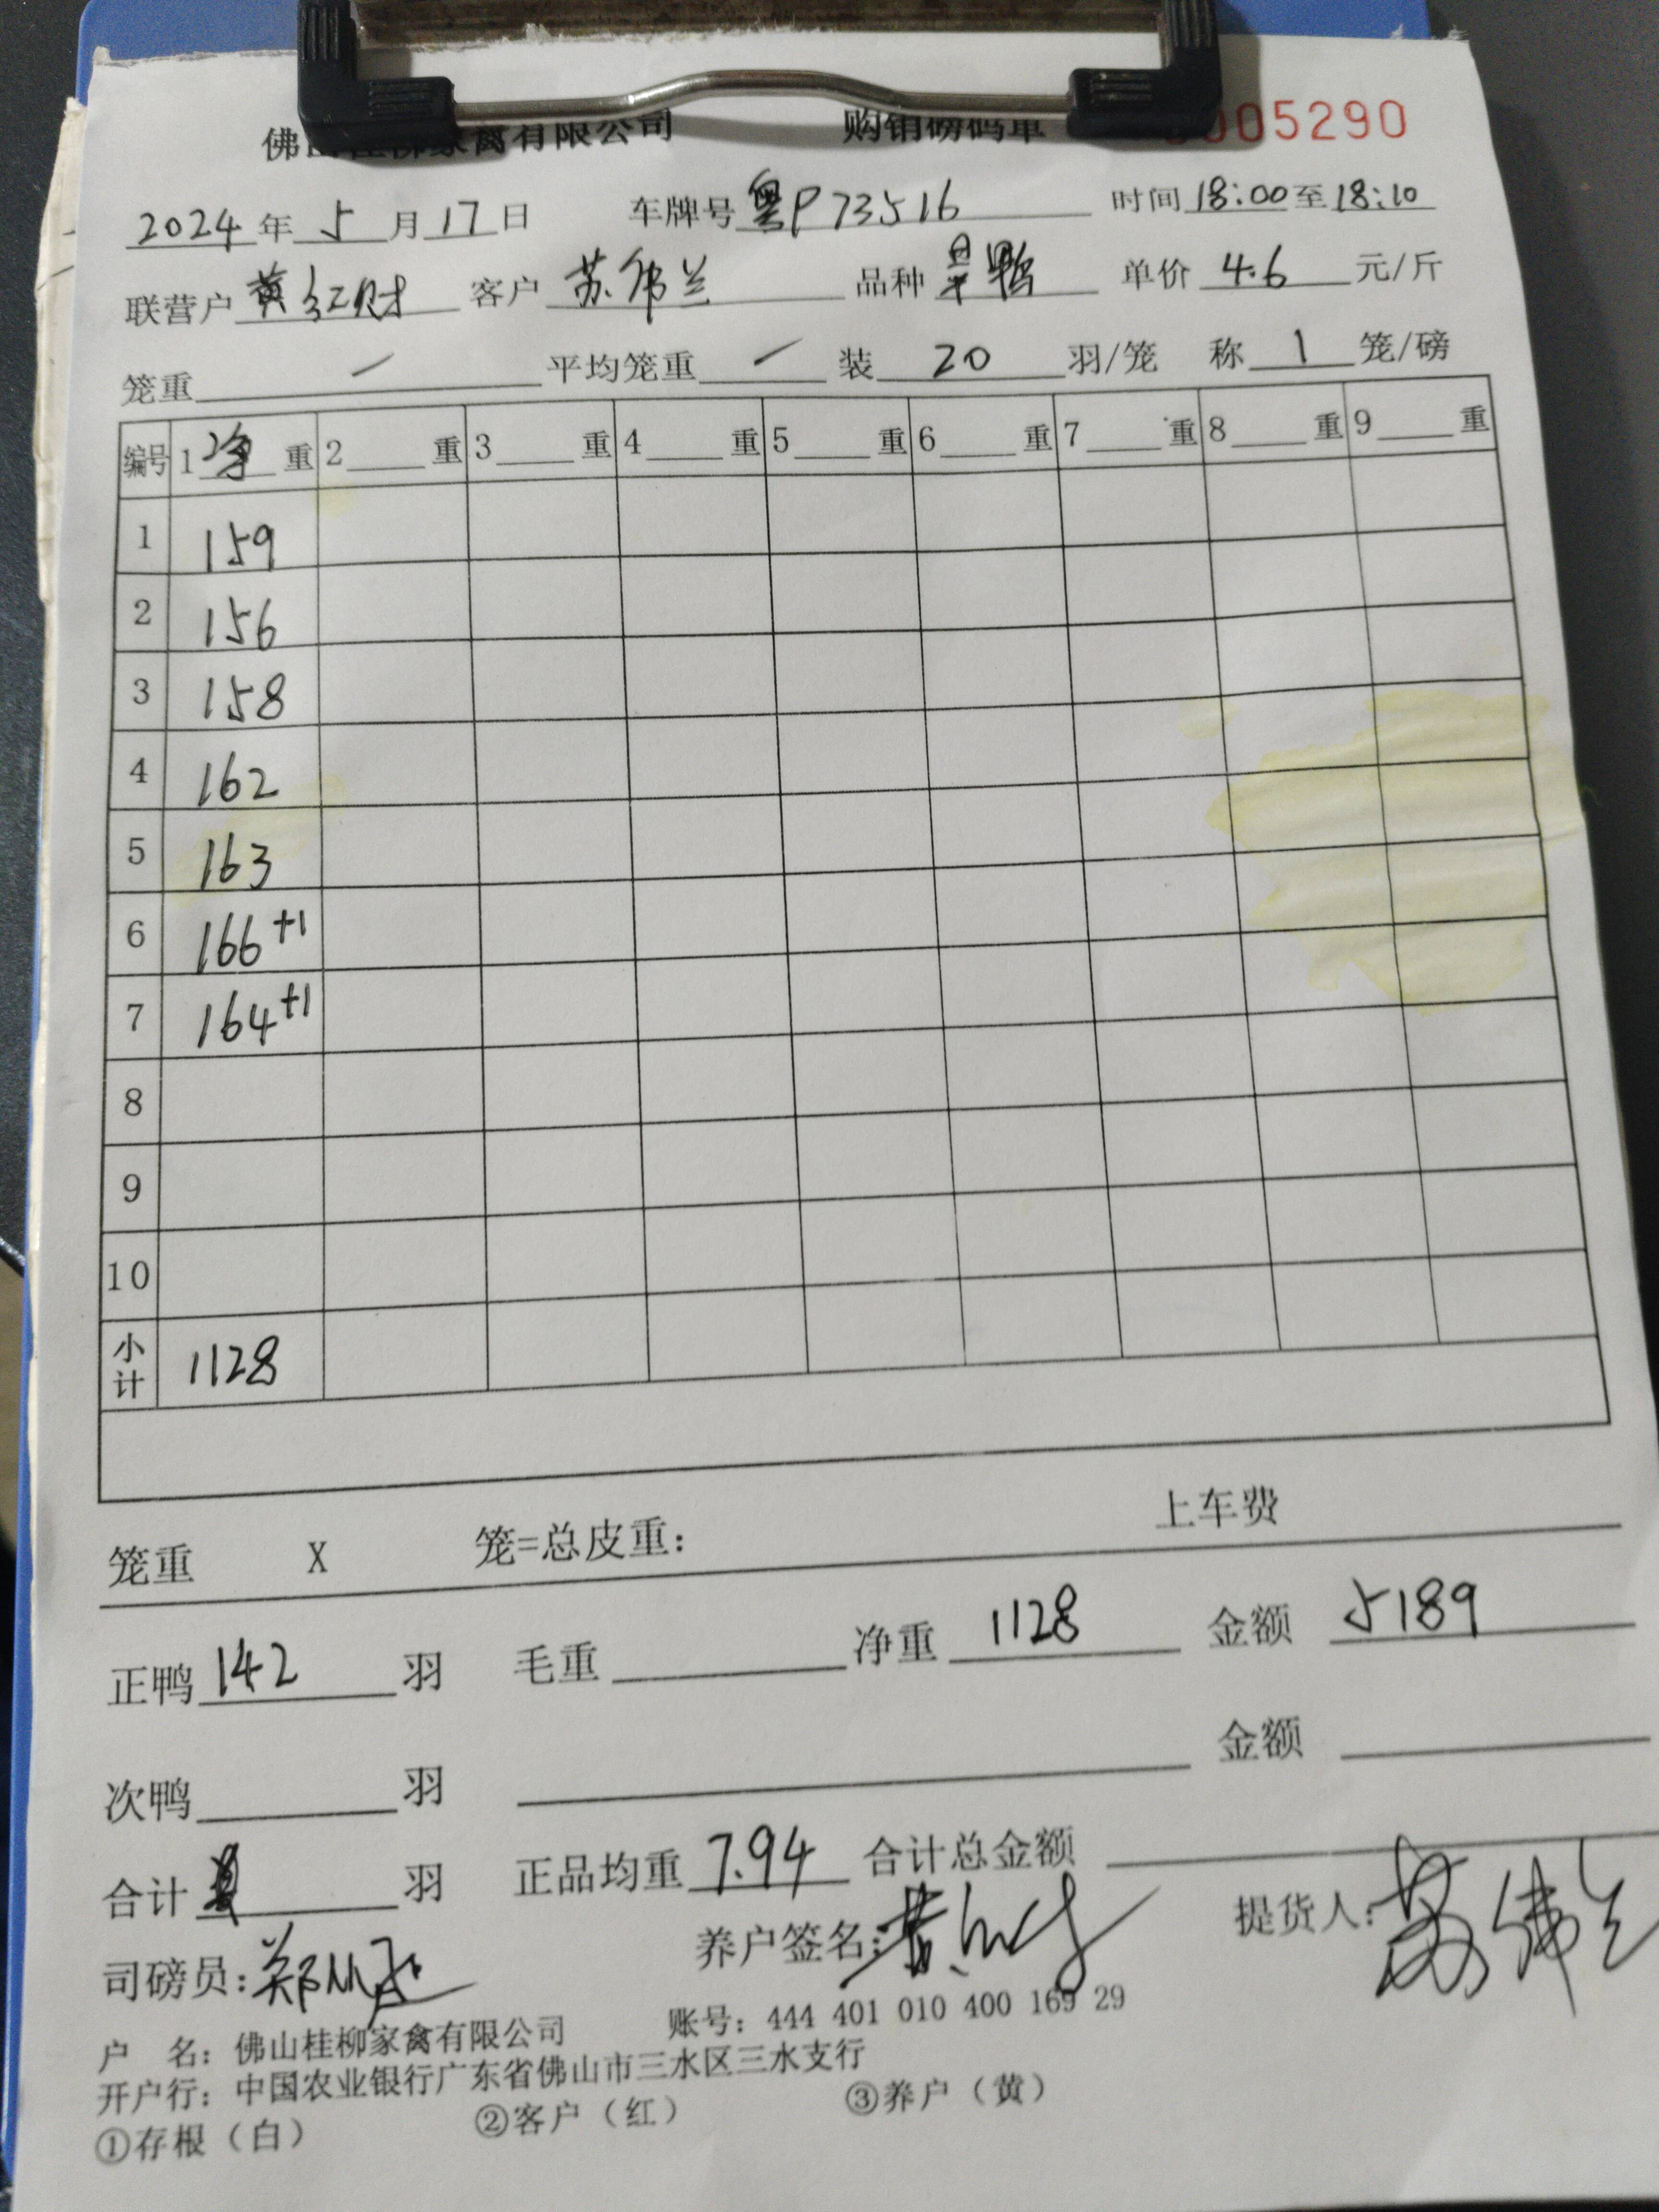 佛山桂柳家禽有限公司 购销磅码单 005290
2024 年 5 月 17 日 车牌号 粤P73516 时间 18:00 至 18:10
联营户 黄红财 客户 苏伟兰 品种 鸭 单价 4.6 元/斤
笼重 / 平均笼重 / 装 20 羽/笼 称 1 笼/磅
编号 1 净 重 2 重 3 重 4 重 5 重 6 重 7 重 8 重 9 重
1 159
2 156
3 158
4 162
5 163
6 166+1
7 164+1
8
9
10
小计 1128
笼重 X 笼=总皮重: 上车费
正鸭 142 羽 毛重 净重 1128 金额 5189
次鸭 羽 金额
合计 羽 正品均重 7.94 合计总金额
司磅员: 郑 养户签名: 提货人: 苏伟兰
户 名: 佛山桂柳家禽有限公司 账号: 444 401 010 400 169 29
开户行: 中国农业银行广东省佛山市三水区三水支行
①存根（白） ②客户（红） ③养户（黄）